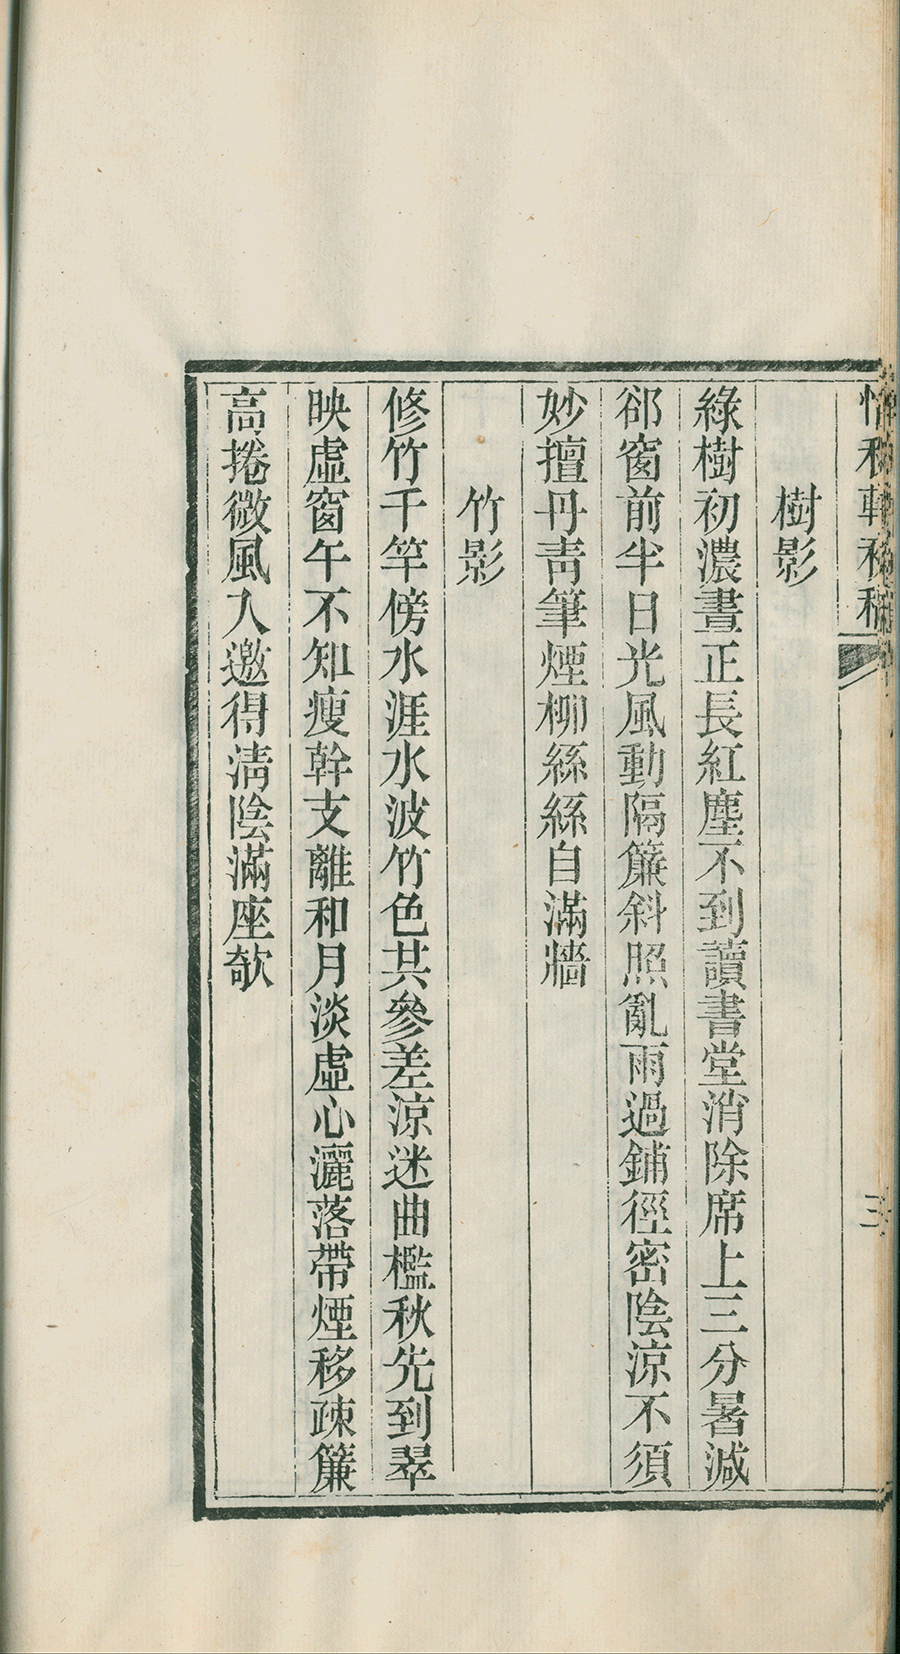 樹影
綠樹初濃晝正長紅塵不到讀書堂消除席上三分暑減
郤窗前半日光風動隔簾斜照亂雨過鋪徑密陰涼不須
妙擅丹靑筆煙柳絲絲自滿牆
竹影
修竹千竿傍水涯水波竹色共參差涼迷曲檻秋先到翠
映虛窗午不知瘦幹支離和月淡虛心灑落帶煙移疎簾
高捲微風入邀得淸陰滿座欹
三